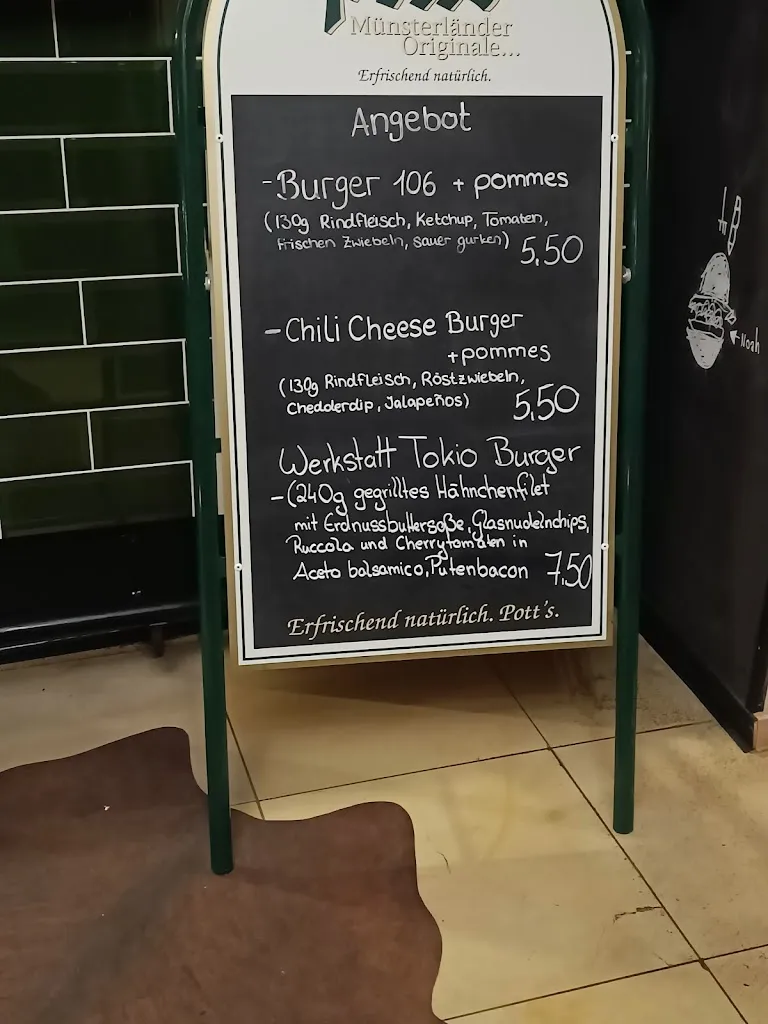 Münsterländer
Originale...
Erfrischend natürlich.
Angebot
- Burger 106 + pommes
(130g Rindfleisch, Ketchup, Tomaten,
frischen Zwiebeln, sauer gurken) 5,50
- Chili Cheese Burger
+ pommes
(130g Rindfleisch, Röstzwiebeln,
Chedderdip, Jalapeños) 5,50
Werkstatt Tokio Burger
- (240g gegrilltes Hähnchenfilet
mit Erdnussbuttersoße, Glasnudelnchips,
Ruccola und Cherrytomaten in
Aceto balsamico, Putenbacon 7,50
Erfrischend natürlich. Pott's.
Noah